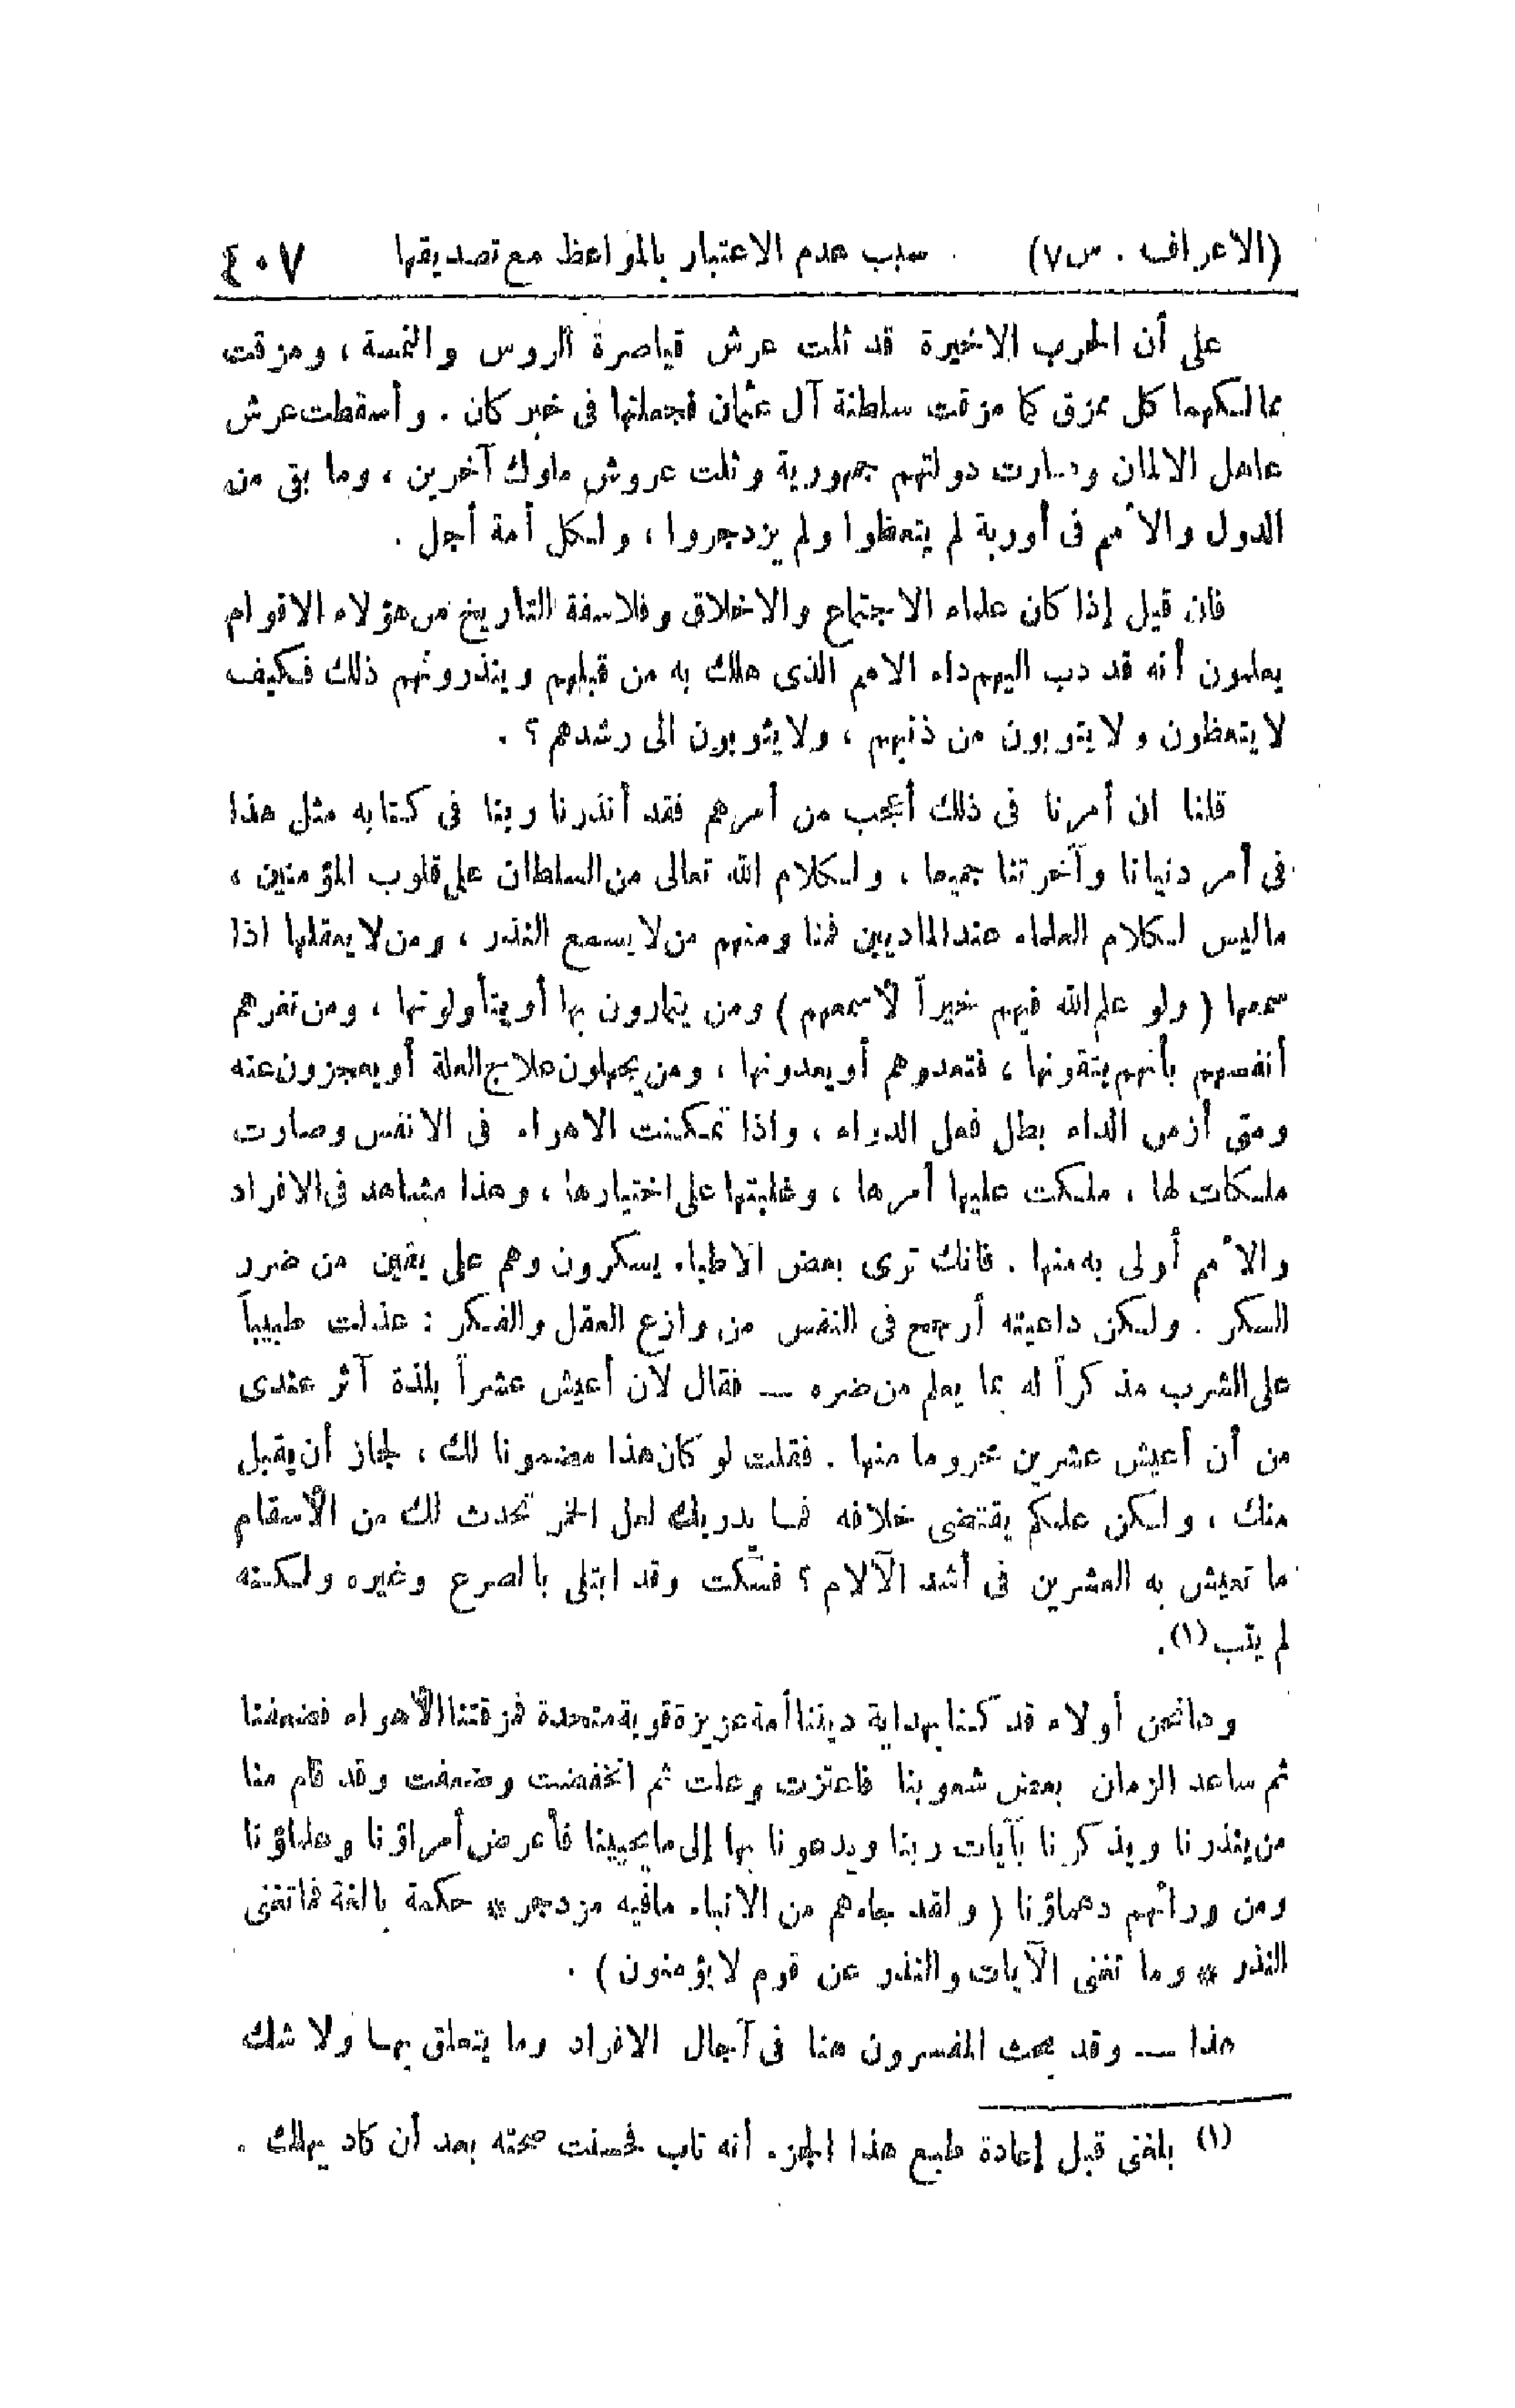 (الاعراف . س٧) سبب عدم الاعتبار بالمواعظ مع تصديقها ٤٠٧
على أن الحرب الاخيرة قد ثلت عرش قياصرة الروس والنمسة ، ومزقت
ممالكهما كل ممزق كما مزقت سلطنة آل عثمان فجعلتها فى خبر كان . وأسقطت عرش
عاهل الالمان وصارت دولتهم جمهورية وثلت عروش ملوك آخرين ، وما بقى من
الدول والأمم فى أوربة لم يتعظوا ولم يزدجروا ، ولكل أمة أجل .
فان قيل إذا كان علماء الاجتماع والاخلاق وفلاسفة التاريخ من هؤلاء الاقوام
يعلمون أنه قد دب اليهم داء الامم الذى هلك به من قبلهم وينذرونهم ذلك فكيف
لا يتعظون ولا يتوبون من ذنبهم ، ولا يثوبون الى رشدهم ؟ .
قلنا ان أمرنا فى ذلك أعجب من أمرهم فقد أنذرنا ربنا فى كتابه مثل هذا
فى أمر دنيانا وآخرتنا جميعا ، ولكلام الله تعالى من السلطان على قلوب المؤمنين ،
ما ليس لكلام العلماء عند الماديين فمنا ومنهم من لا يسمع النذر ، ومن لا يعقلها اذا
سمعها ( ولو علم الله فيهم خيراً لأسمعهم ) ومن يتمارون بها أو يتأولونها ، ومن تغرهم
أنفسهم بأنهم يتقونها ، فتعدوهم أو يعدونها ، ومن يجهلون علاج العلة أو يعجزون عنه
ومتى أزمن الداء بطل فعل الدواء ، واذا تمكنت الاهواء فى الانفس وصارت
ملكات لها ، ملكت عليها أمرها ، وغلبتها على اختيارها ، وهذا مشاهد فى الافراد
والأمم أولى به منها . فانك ترى بعض الاطباء يسكرون وهم على يقين من ضرر
السكر . ولكن داعيته أرجح فى النفس من وازع العقل والفكر : عذلت طبيباً
على الشرب مذكراً له بما يعلم من ضره — فقال لان أعيش عشراً بلذة آثر عندى
من أن أعيش عشرين محروما منها . فقلت لو كان هذا مضمونا لك ، لجاز أن يقبل
منك ، ولكن علمكم يقتضى خلافه فما يدريك لعل الخمر تحدث لك من الأسقام
ما تعيش به العشرين فى أشد الآلام ؟ فسكت وقد ابتلى بالصرع وغيره ولكنه
لم يتب (١).
وها نحن أولاء قد كنا بهداية ديننا أمة عزيزة قوية متحدة فمزقتنا الأهواء فضعفنا
ثم ساعد الزمان بعض شعوبنا فاعتزت وعلت ثم انخفضت وضعفت وقد قام منا
من ينذرنا ويذكرنا بآيات ربنا ويدعونا بها إلى ما يحيينا فأعرض أمراؤنا وعلماؤنا
ومن ورائهم دهماؤنا ( ولقد جاءهم من الانباء ما فيه مزدجر * حكمة بالغة فما تغنى
النذر * وما تغنى الآيات والنذر عن قوم لا يؤمنون ) .
هذا — وقد بحث المفسرون هنا فى آجال الافراد وما يتعلق بها ولا شك
(١) بلغنى قبل إعادة طبع هذا الجزء أنه تاب فحسنت صحته بعد أن كاد يهلك .